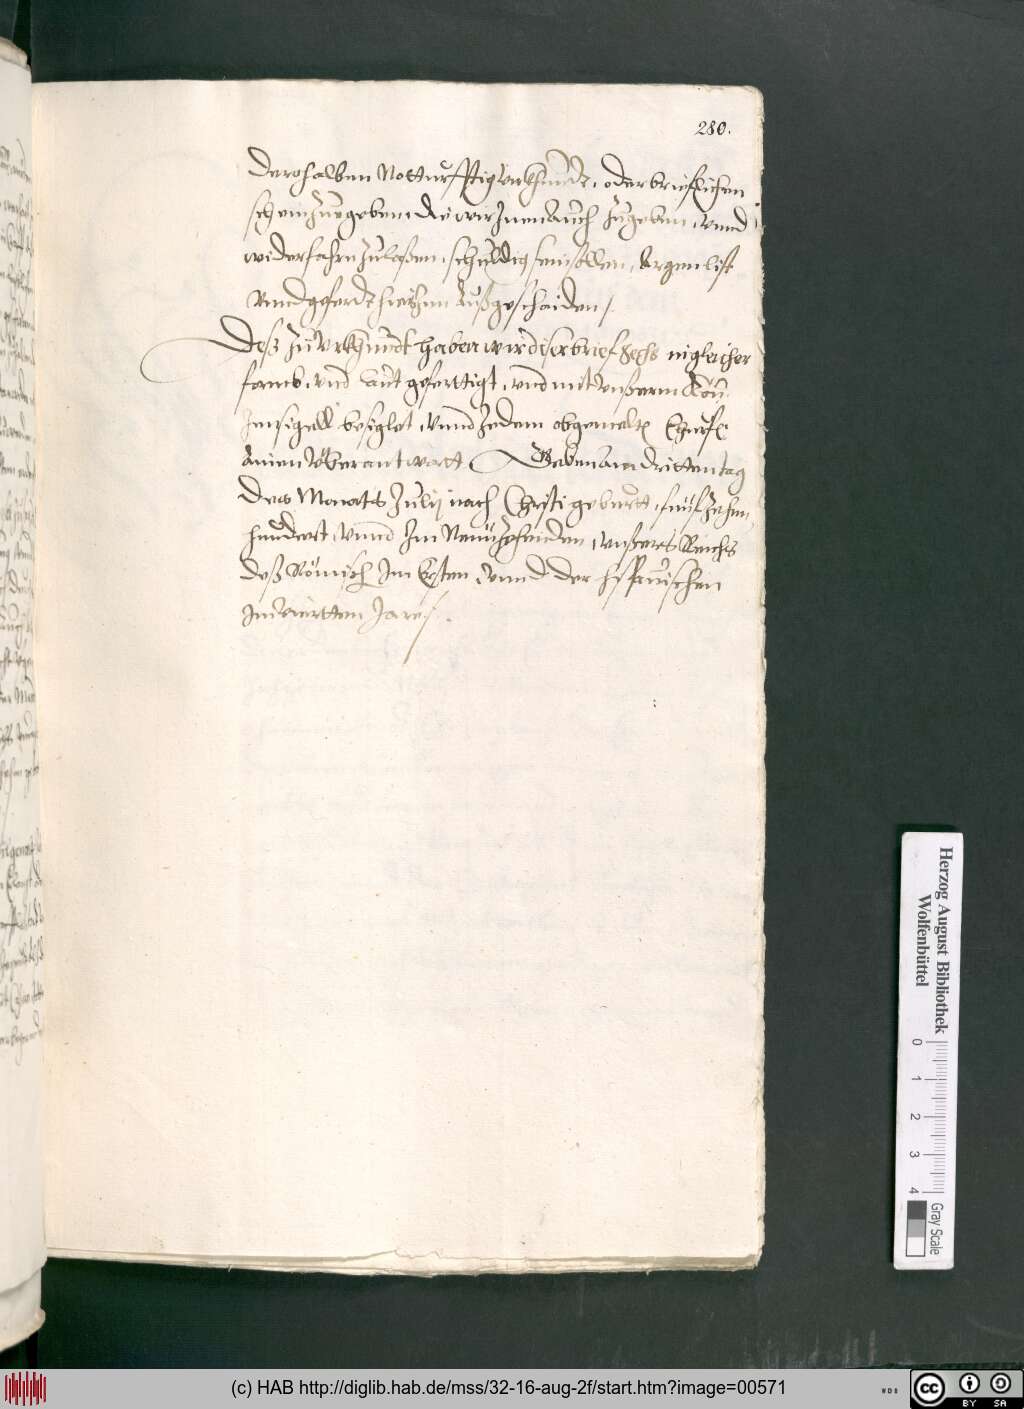 280.
derohalben Notturfftig vrkhunde, oder brieflichen
schein zuegeben, die wir Inen auch zugeben, vnnd
widerfahrn zulaßen, schuldig sein sollen, Argenlist
vnnd geferde hierinn außgeschaiden /
Deß zu vrkhundt haben wir diser brief Sechs in gleicher
formb, vnd laut gefertigt, vnd mit vnßerm Kön:
Innsigell besiglet, vnnd Jedem obgemelte Churf:
Ainen vberantwortt Geben am dritten tag
des Monats Julij nach Christi geburtt, fünfzehen
hundert, vnnd Im Neunzehenden, vnßers Reichs
deß Römisch Im Ersten, vnnd der hispanischen
Im viertten Jare /.
Herzog August Bibliothek
Wolfenbüttel
0 1 2 3 4
Gray Scale
(c) HAB http://diglib.hab.de/mss/32-16-aug-2f/start.htm?image=00571
WDB
cc BY SA